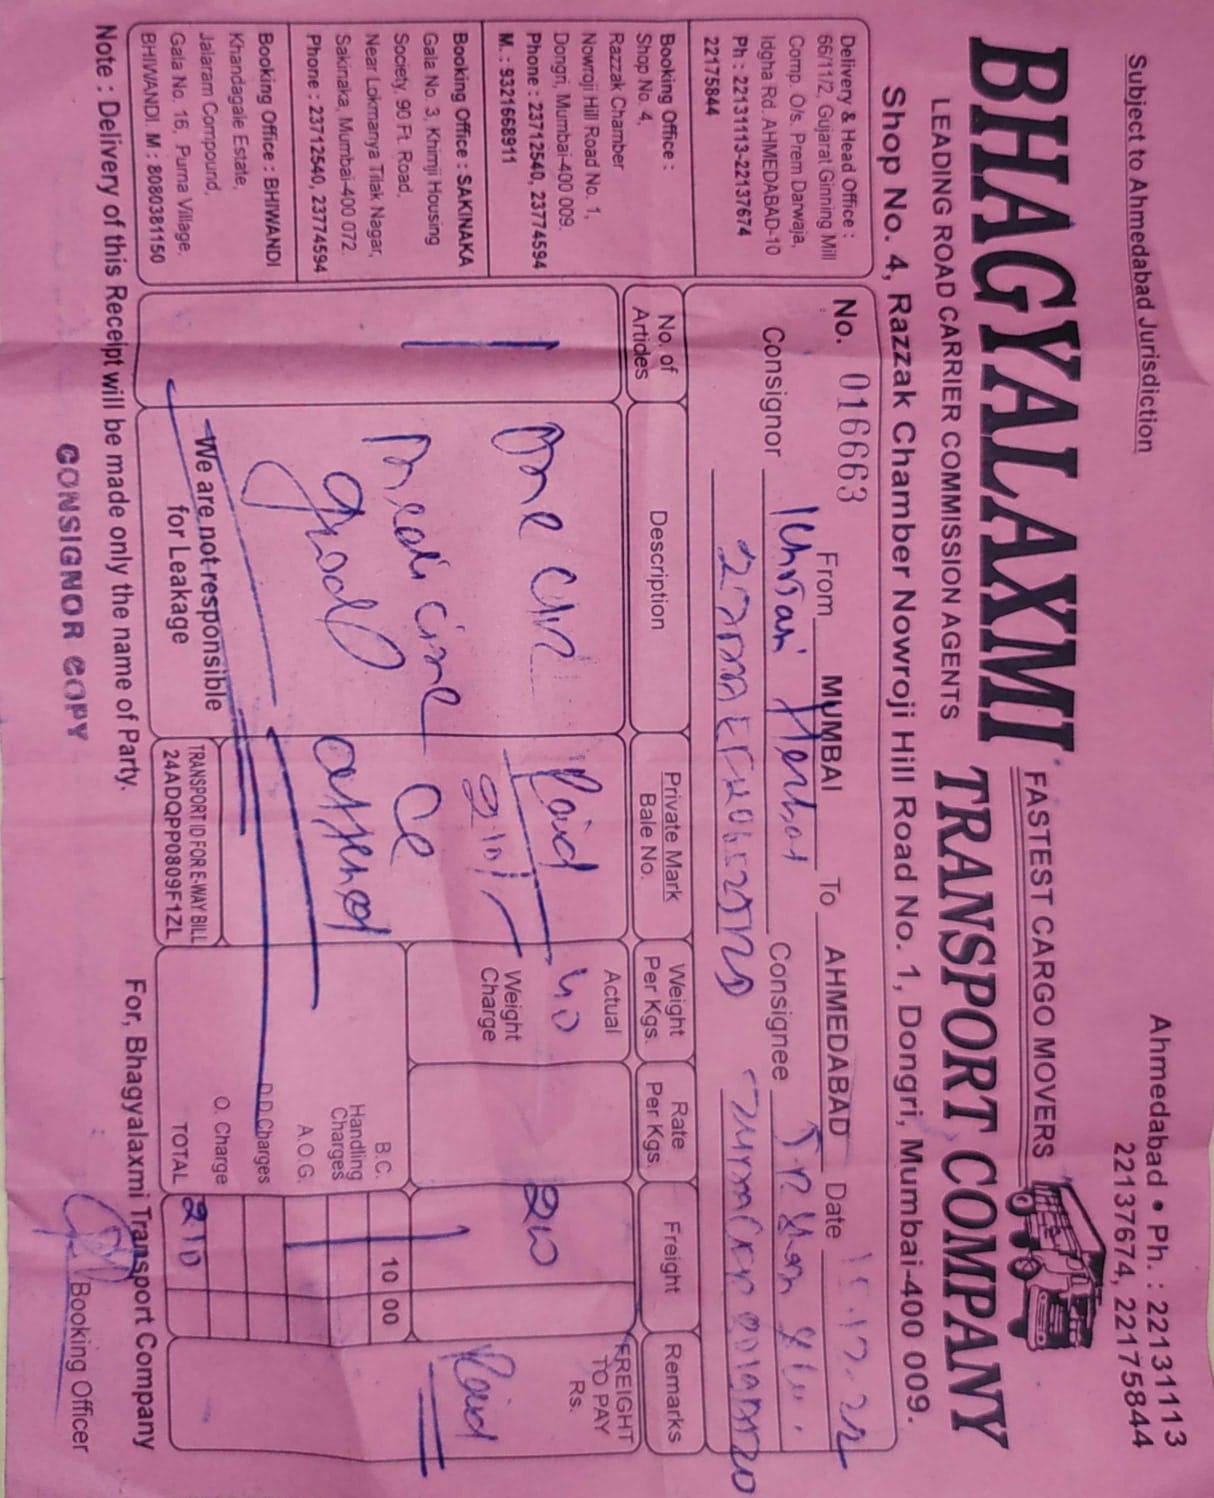 Subject to Ahmedabad Jurisdiction
Ahmedabad • Ph. : 22131113
22137674, 22175844
FASTEST CARGO MOVERS
BHAGYALAXMI TRANSPORT COMPANY
LEADING ROAD CARRIER COMMISSION AGENTS
Shop No. 4, Razzak Chamber Nowroji Hill Road No. 1, Dongri, Mumbai-400 009.
Delivery & Head Office :
66/11/2, Gujarat Ginning Mill
Comp. O/s. Prem Darwaja,
Idgha Rd. AHMEDABAD-10
Ph : 22131113-22137674
22175844
Booking Office :
Shop No. 4,
Razzak Chamber
Nowroji Hill Road No. 1,
Dongri, Mumbai-400 009.
Phone : 23712540, 23774594
M. : 9321668911
Booking Office : SAKINAKA
Gala No. 3, Khimji Housing
Society, 90 Ft. Road,
Near Lokmanya Tilak Nagar,
Sakinaka, Mumbai-400 072.
Phone : 23712540, 23774594
Booking Office : BHIWANDI
Khandagale Estate,
Jalaram Compound,
Gala No. 16, Purna Village,
BHIWANDI. M : 8080381150
No. 016663 From MUMBAI To AHMEDABAD Date
Consignor Consignee
No. of Articles
Description
Private Mark Bale No.
Weight Per Kgs.
Rate Per Kgs.
Freight
Remarks
One
Paid
Actual 40
200
FREIGHT TO PAY Rs.
Weight Charge
Paid
Medicine
good
B.C. 10 00
Handling Charges
A.O.G.
D.D.Charges
O. Charge
TOTAL 210
We are not responsible
for Leakage
TRANSPORT ID FOR E-WAY BILL
24ADQPP0809F1ZL
Note : Delivery of this Receipt will be made only the name of Party.
For, Bhagyalaxmi Transport Company
CONSIGNOR COPY
Booking Officer